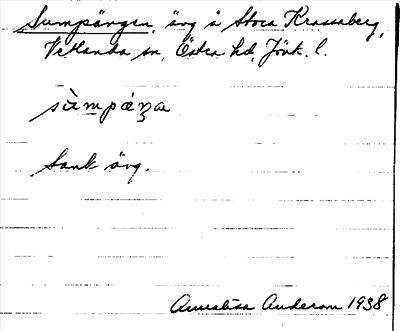 Sumpängen, äng å Stora Krassaberg,
Vetlanda sn, Östra hd, Jönk. l.
sùmpáŋa
Sank äng.
Annalisa Anderson 1938